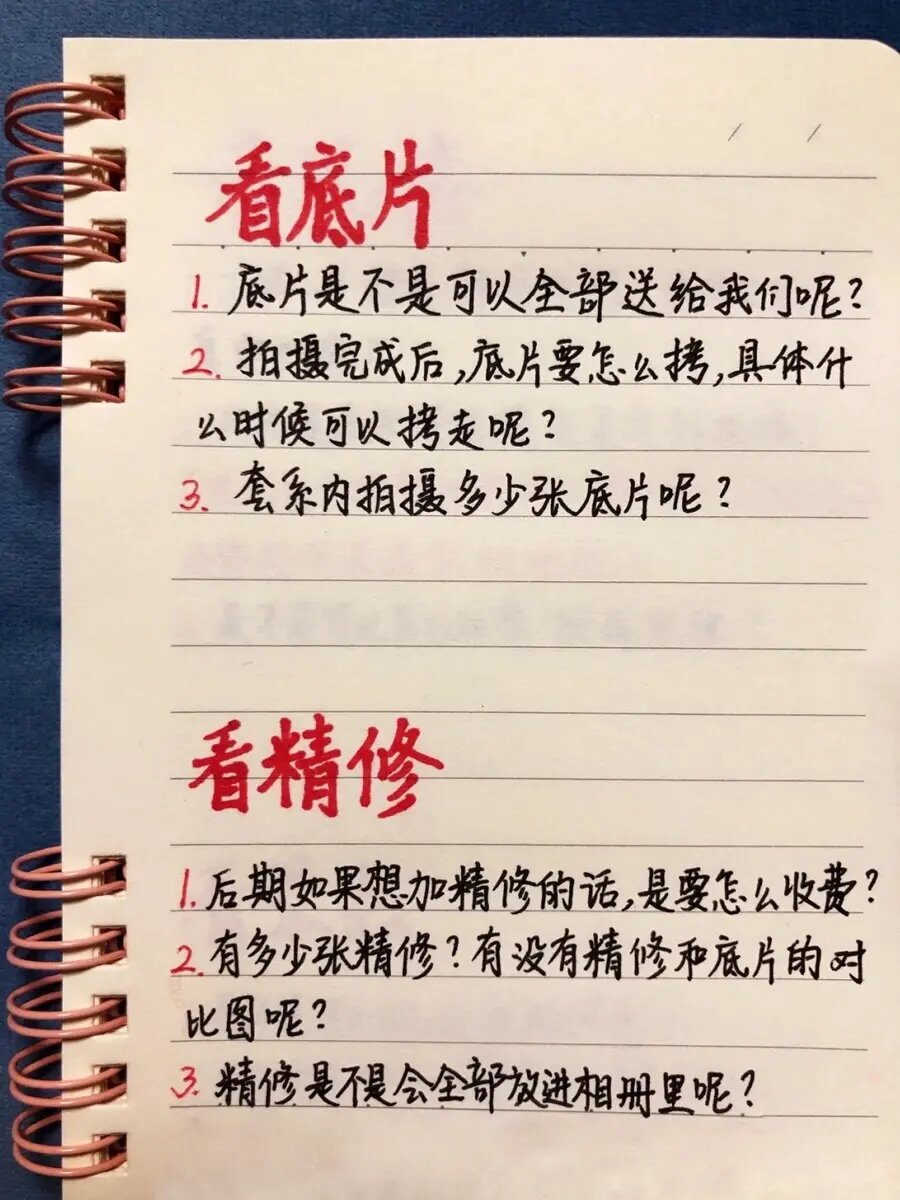 看底片
1. 底片是不是可以全部送给我们呢？
2. 拍摄完成后,底片要怎么拷,具体什
么时候可以拷走呢？
3. 套系内拍摄多少张底片呢？
看精修
1. 后期如果想加精修的话,是要怎么收费？
2. 有多少张精修？有没有精修和底片的对
比图呢？
3. 精修是不是会全部放进相册里呢？